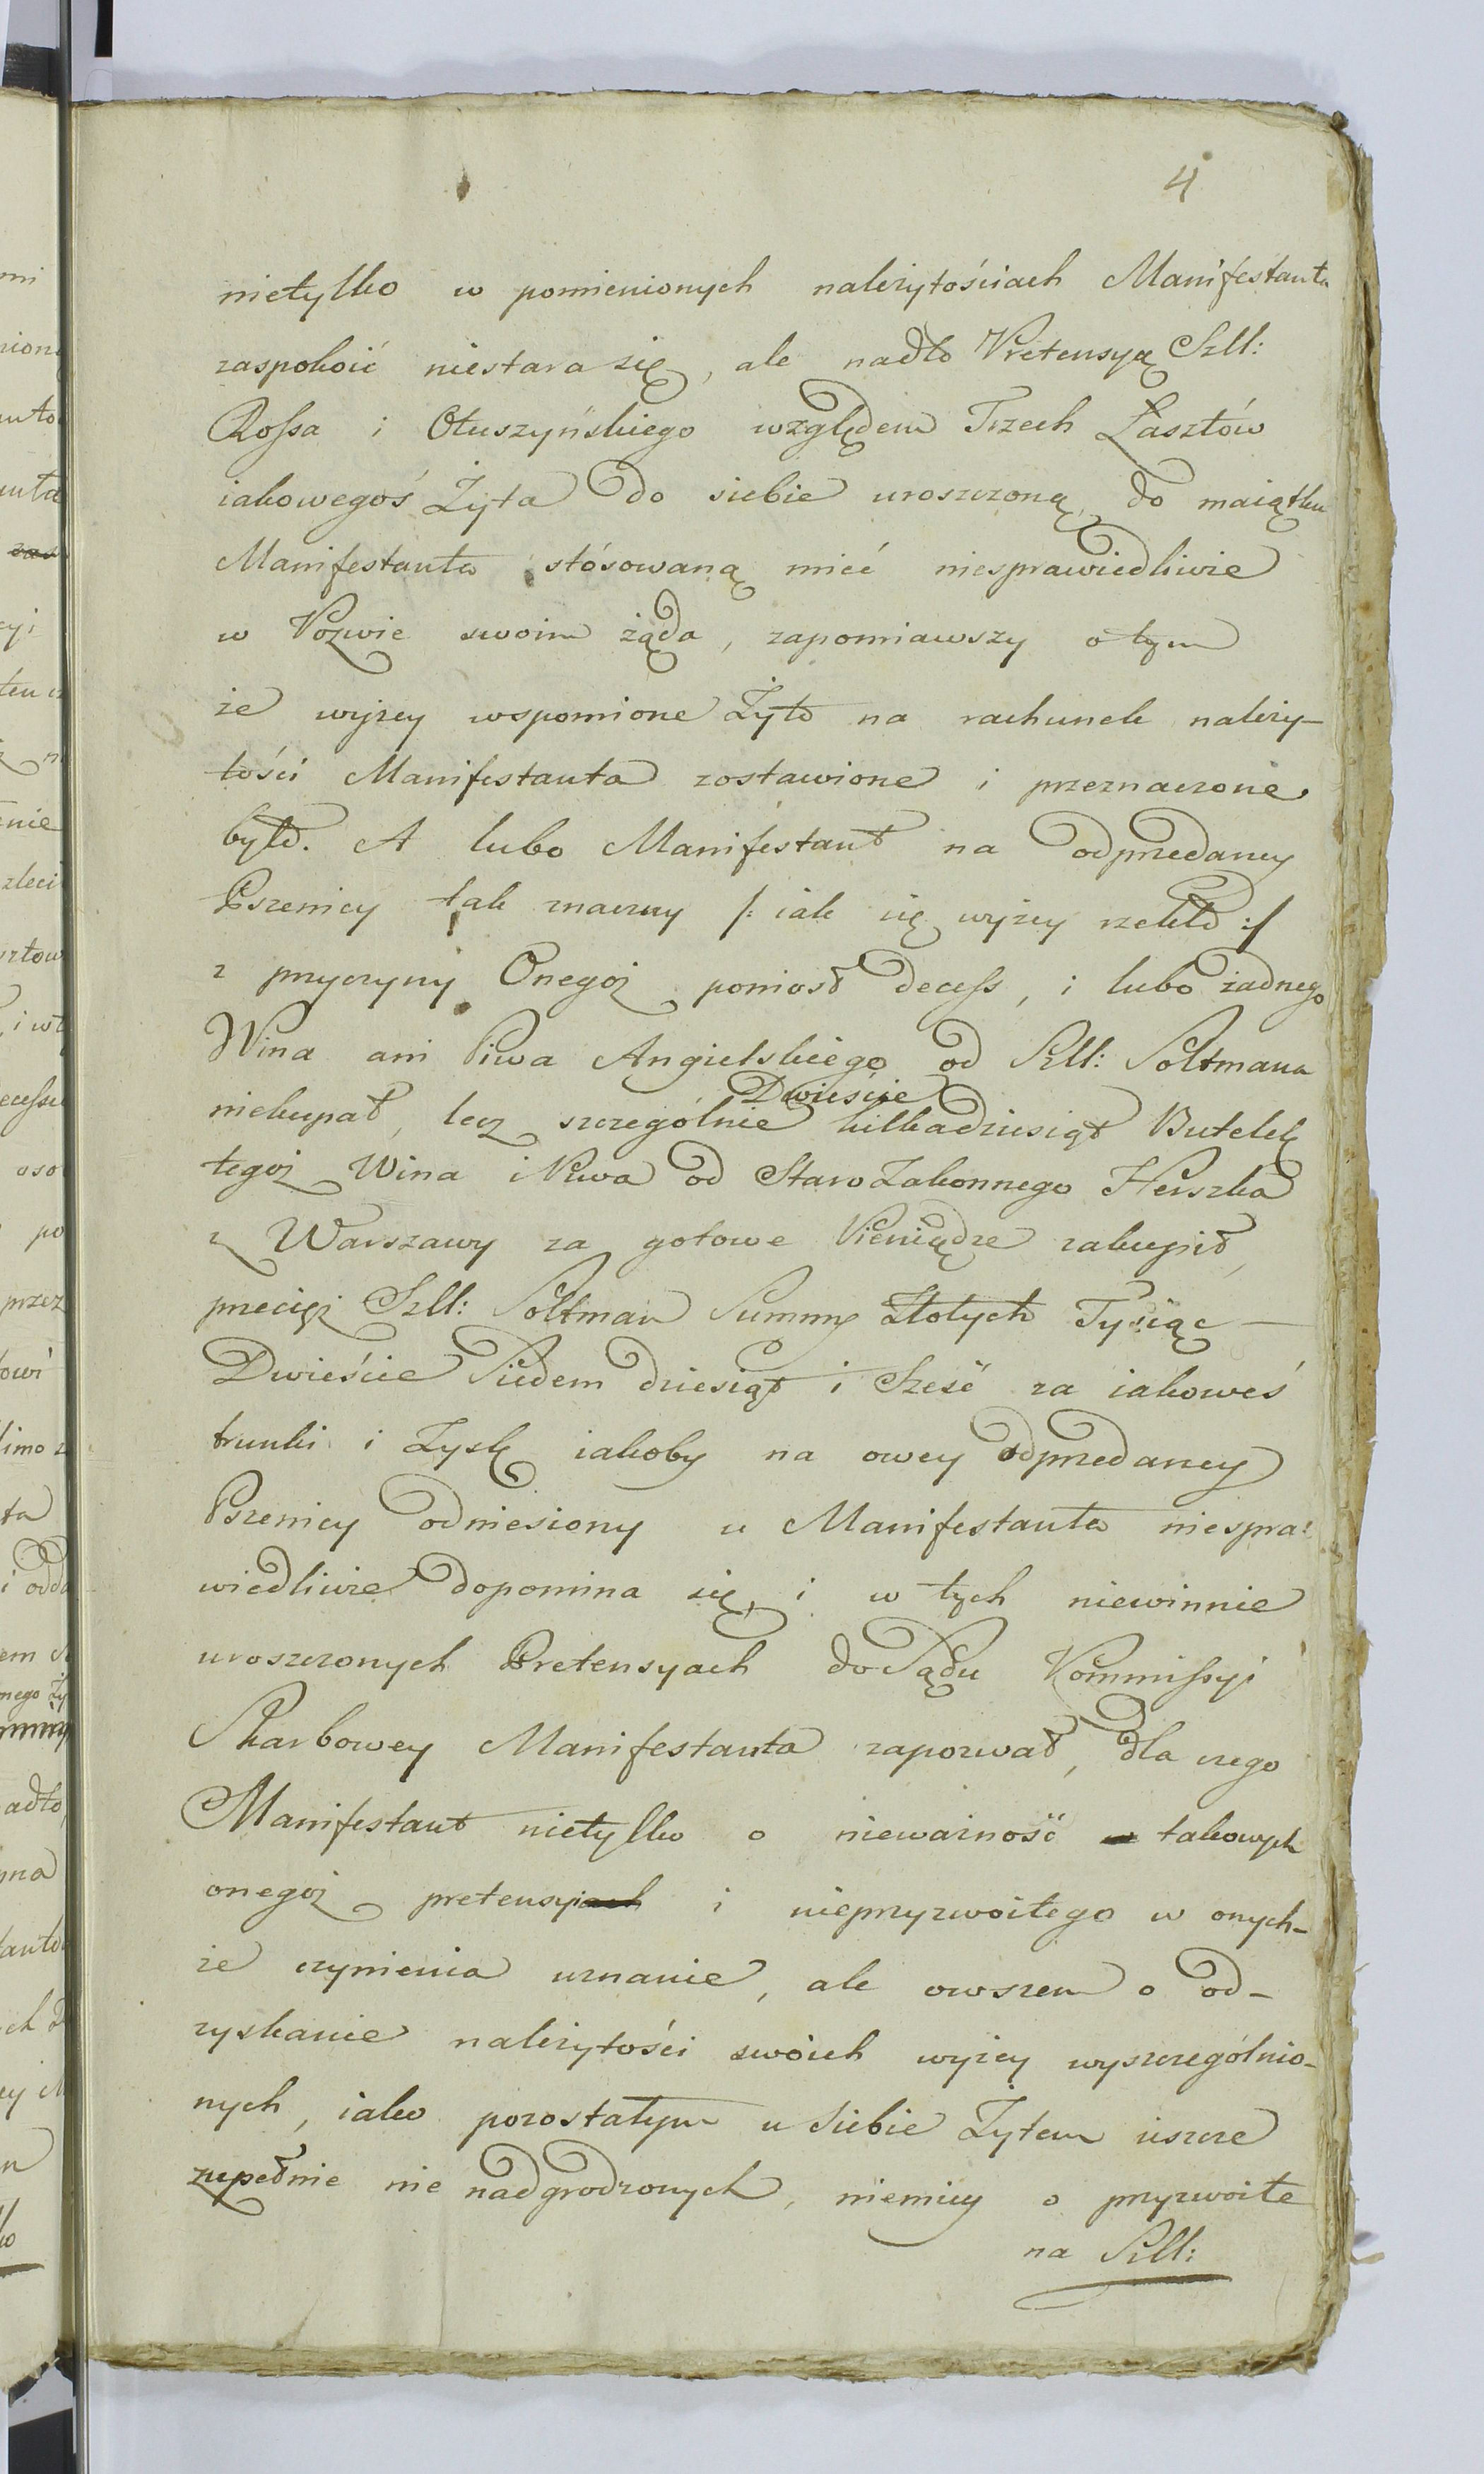 4
nietylko w pomienionych należytościach Manifestanta
zaspokoić niestara się, ale nadto Pretensyą Szll:
Rossa i Otuszyńskiego względem Trzech Łasztów
iakowegoś Żyta do siebie uroszczoną, do maiątku
Manifestanta stósowaną mieć niesprawiedliwie
w Pozwie swoim żąda, zapomiawszy o tym
że wyżey wspomione Żyto na rachunek należy-
tości Manifestanta zostawione i przeznaczone
było. A lubo Manifestant na odprzedaney
Pszenicy tak znaczny /: iak się wyżey rzekło :/
z przyczyny Onegoż poniosł decess, i lubo żadnego
Wina ani Piwa Angielskiego od Szll: Soltmana
niekupał, lecz szczególnie Dwieście kilkadziesiąt Butelek
tegoż Wina i Piwa od Starozakonnego Herszka
z Warszawy za gotowe Pieniądze zakupił,
przecięż Szll: Soltman Summę Złotych Tysiąc —
Dwieście Siedem dziesiąt i Sześć za iakoweś
trunki i Zysk iakoby na owey odprzedaney
Pszenicy odniesiony u Manifestanta niespra:
wiedliwie dopomina się, i w tych niewinnie
uroszczonych Pretensyach do Sądu Kommissyi
Skarbowey Manifestanta zapozwał, dla czego
Manifestant nietylko o nieważność w takowych
onegoż pretensyiach i nieprzyzwoitego w onych-
że czynienia uznanie, ale owszem o od-
zyskanie należytości swoich wyżey wyszczególnio-
nych, iako pozostałym u siebie Żytem ieszcze
zupełnie nie nadgrodzonych, niemiey o przyzwoite
na Szll: